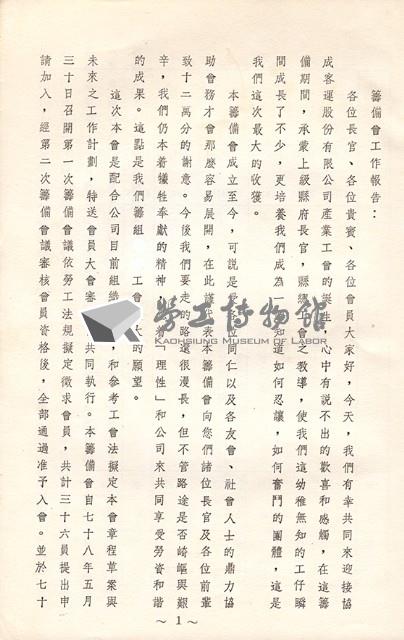 籌備會工作報告：
各位長官、各位貴賓、各位會員大家好，今天，我們有幸共同來迎接協
成客運股份有限公司產業工會的誕生，心中有說不出的歡喜和感觸，在這籌
備期間，承蒙上級縣府長官，縣總工會之教導，使我們這幼稚無知的工仔瞬
間成長了不少，更培養我們成為一 知道如何忍讓，如何奮鬥的團體，這是
我們這次最大的收獲。
本籌備會成立至今，可說是 各位同仁以及各友會、社會人士的鼎力協
助會務才會那麼容易展開，在此謹 表本籌備會向您們諸位長官及各位前輩
致十二萬分的謝意。今後我們要走的路還很漫長，但不管路途是否崎嶇與艱
辛，我們仍本着犧牲奉獻的精神 着「理性」和公司來共同享受勞資和諧
的成果。這點是我們籌組 工會 大的願望。
這次本會是配合公司目前組織 和參考工會法擬定本會章程草案與
未來之工作計劃，特送會員大會審 共同執行。本籌備會自七十八年五月
三十日召開第一次籌備會議依勞工法規擬定徵求會員，共計三十六員提出申
請加入，經第二次籌備會議審核會員資格後，全部通過准予入會。並於七十
～1～
勞工博物館
KAOHSIUNG MUSEUM OF LABOR